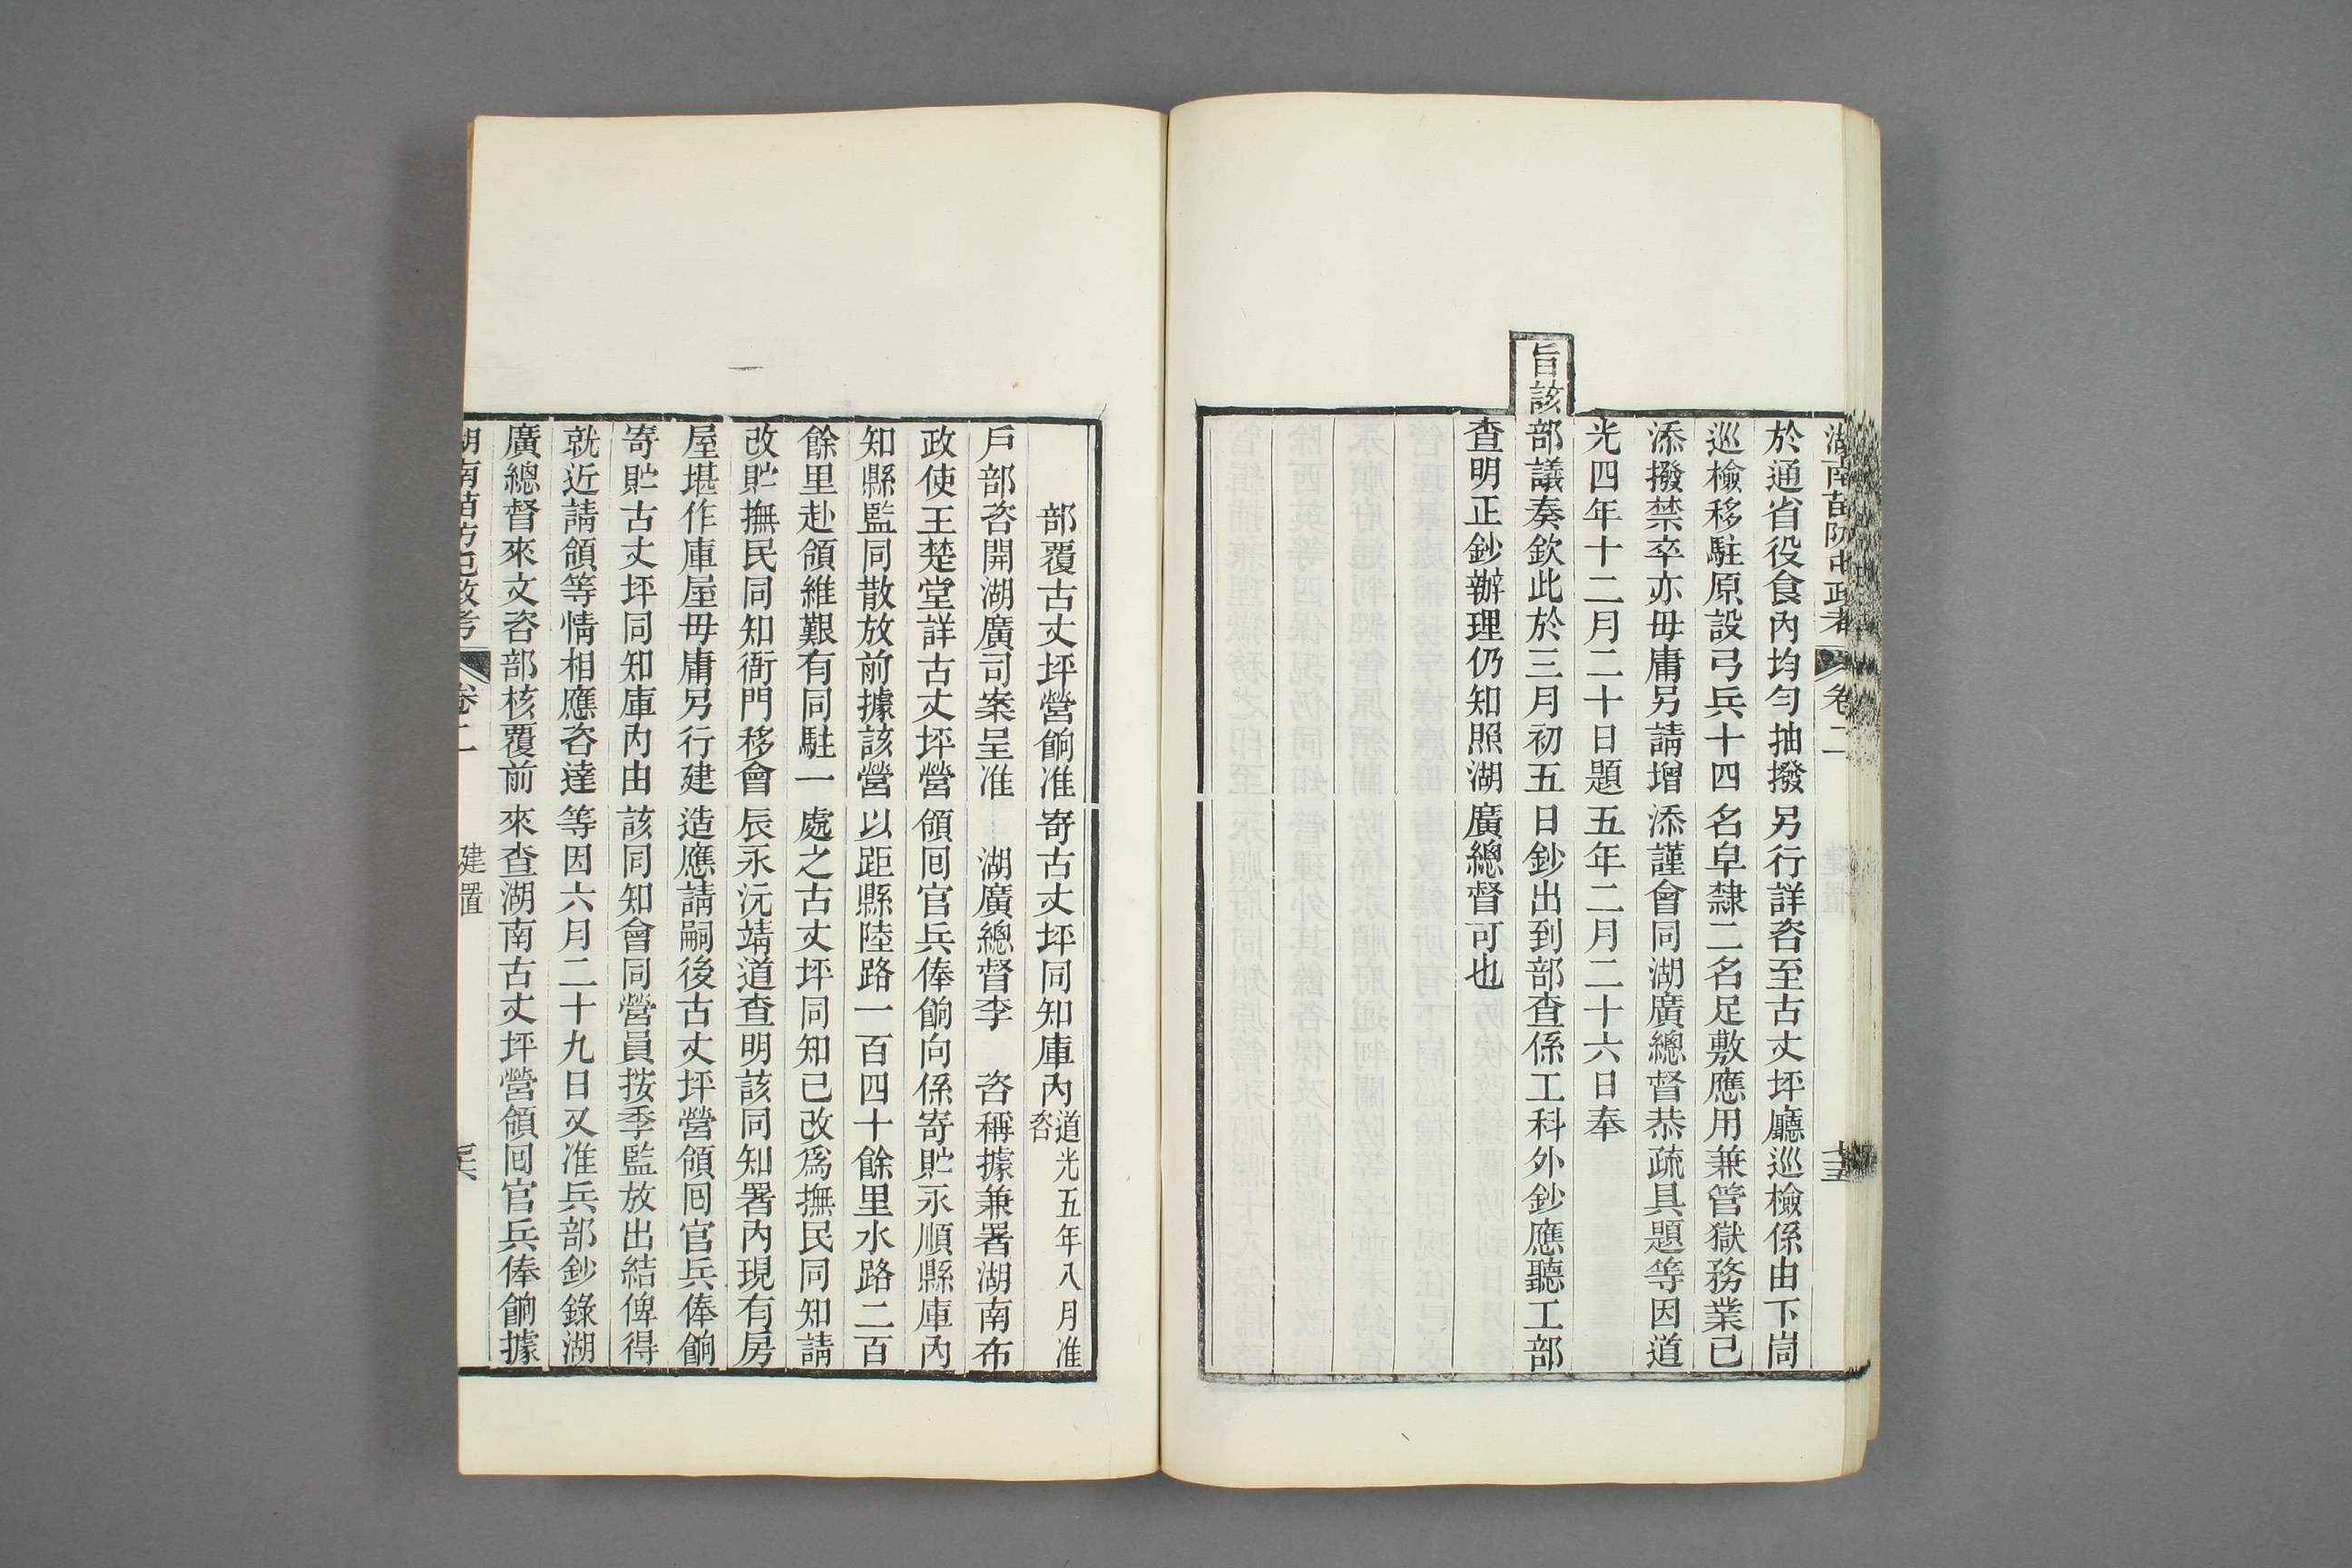 湖南苗防屯政考 卷二
於通省役食內均勻抽撥另行詳咨至古丈坪廳巡檢係由下峝
巡檢移駐原設弓兵十四名皁隸二名足敷應用兼管獄務業已
添撥禁卒亦毋庸另請增添謹會同湖廣總督恭疏具題等因道
光四年十二月二十日題五年二月二十六日奉
旨該部議奏欽此於三月初五日鈔出到部查係工科外鈔應聽工部
查明正鈔辦理仍知照湖廣總督可也
部覆古丈坪營餉准寄古丈坪同知庫內道光五年八月准咨
戶部咨開湖廣司案呈准 湖廣總督李 咨稱據兼署湖南布
政使王楚堂詳古丈坪營領囘官兵俸餉向係寄貯永順縣庫內
知縣監同散放前據該營以距縣陸路一百四十餘里水路二百
餘里赴領維艱有同駐一處之古丈坪同知已改爲撫民同知請
改貯撫民同知衙門移會辰永沅靖道查明該同知署內現有房
屋堪作庫屋毋庸另行建造應請嗣後古丈坪營領囘官兵俸餉
寄貯古丈坪同知庫內由該同知會同營員按季監放出結俾得
就近請領等情相應咨達等因六月二十九日又准兵部鈔錄湖
廣總督來文咨部核覆前來查湖南古丈坪營領囘官兵俸餉據
湖南苗防屯政考 卷二 建置